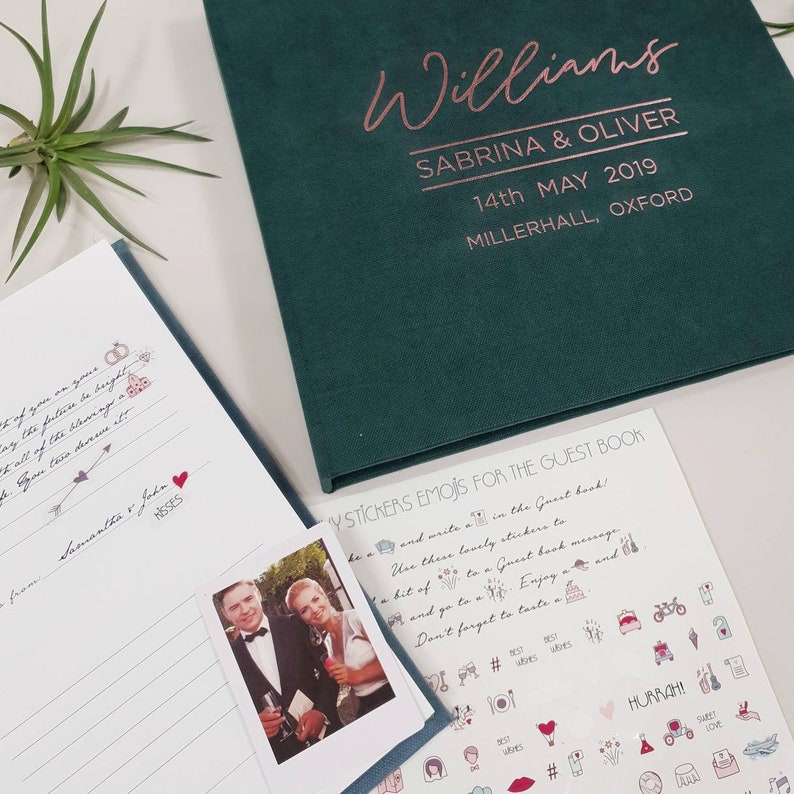 Williams
SABRINA & OLIVER
14th MAY 2019
MILLERHALL, OXFORD
of you on your
the future be bright
all of the blessings a
You two deserve it!
Samantha & John
KISSES
from:
STICKERS EMOJIS FOR THE GUEST BOOK
a and write a in the Guest book!
Use these lovely stickers to
a bit of to a Guest book message.
and go to a . Enjoy a and .
Don't forget to taste a .
# BEST WISHES BEST WISHES
HURRAH!
BEST WISHES SWEET LOVE
#